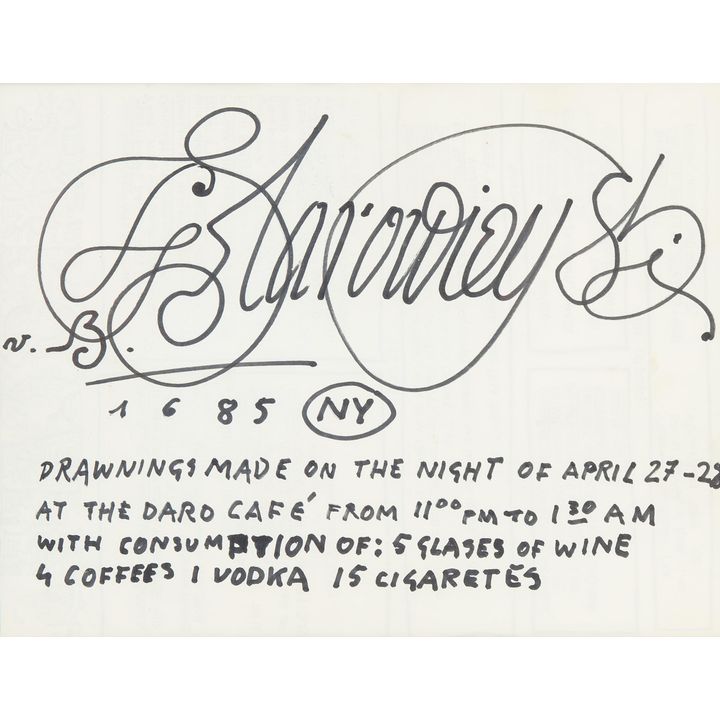 F. Starowieyski
v. B.
1685 NY
DRAWNINGS MADE ON THE NIGHT OF APRIL 27-28
AT THE DARO CAFÉ FROM 11⁰⁰ PM TO 1³⁰ AM
WITH CONSUMPTION OF: 5 GLASES OF WINE
4 COFFEES 1 VODKA 15 CIGARETĖS